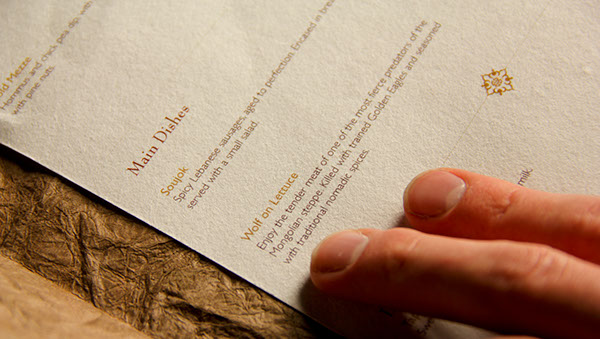 old Mezze
Hommus and chick pea dip with
with pine nuts.
Main Dishes
Soujok
Spicy Lebanese sausages, aged to perfection. Encased in
served with a small salad.
Wolf on Lettuce
Enjoy the tender meat of one of the most fierce predators of the
Mongolian steppe. Killed with trained Golden Eagles and seasoned
with traditional nomadic spices.
milk.